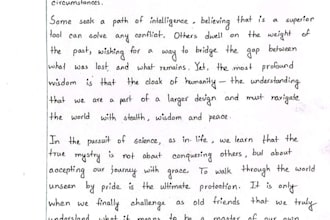 circumstances.
Some seek a path of intelligence, believing that is a superior
tool can solve any conflict. Others dwell on the weight of
the past, wishing for a way to bridge the gap between
what was lost and what remains. Yet, the most profound
wisdom is that the cloak of humanity — the understanding
that we are a part of a larger design and must navigate
the world with stealth, wisdom and peace.
In the pursuit of science, as in life, we learn that the
true mystry is not about conquering others, but about
accepting our journey with grace. To walk through the world
unseen by pride is the ultimate protection. It is only
when we finally challenge as old friends that we truly
understand what it means to be a master of our own